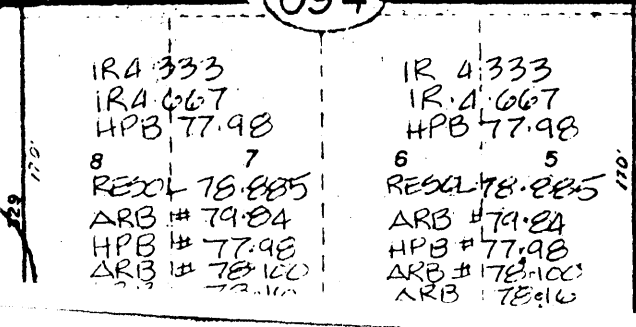 094
IR4.333
IR4.667
HPB 77.98
8 7
RESOL 78.885
ARB # 79.84
HPB # 77.98
ARB # 78.100
ARB 78.16
IR 4.333
IR.4.667
HPB 77.98
6 5
RESOL 78.885
ARB # 79.84
HPB # 77.98
ARB # 78.100
ARB 78.16
170'
170'
329